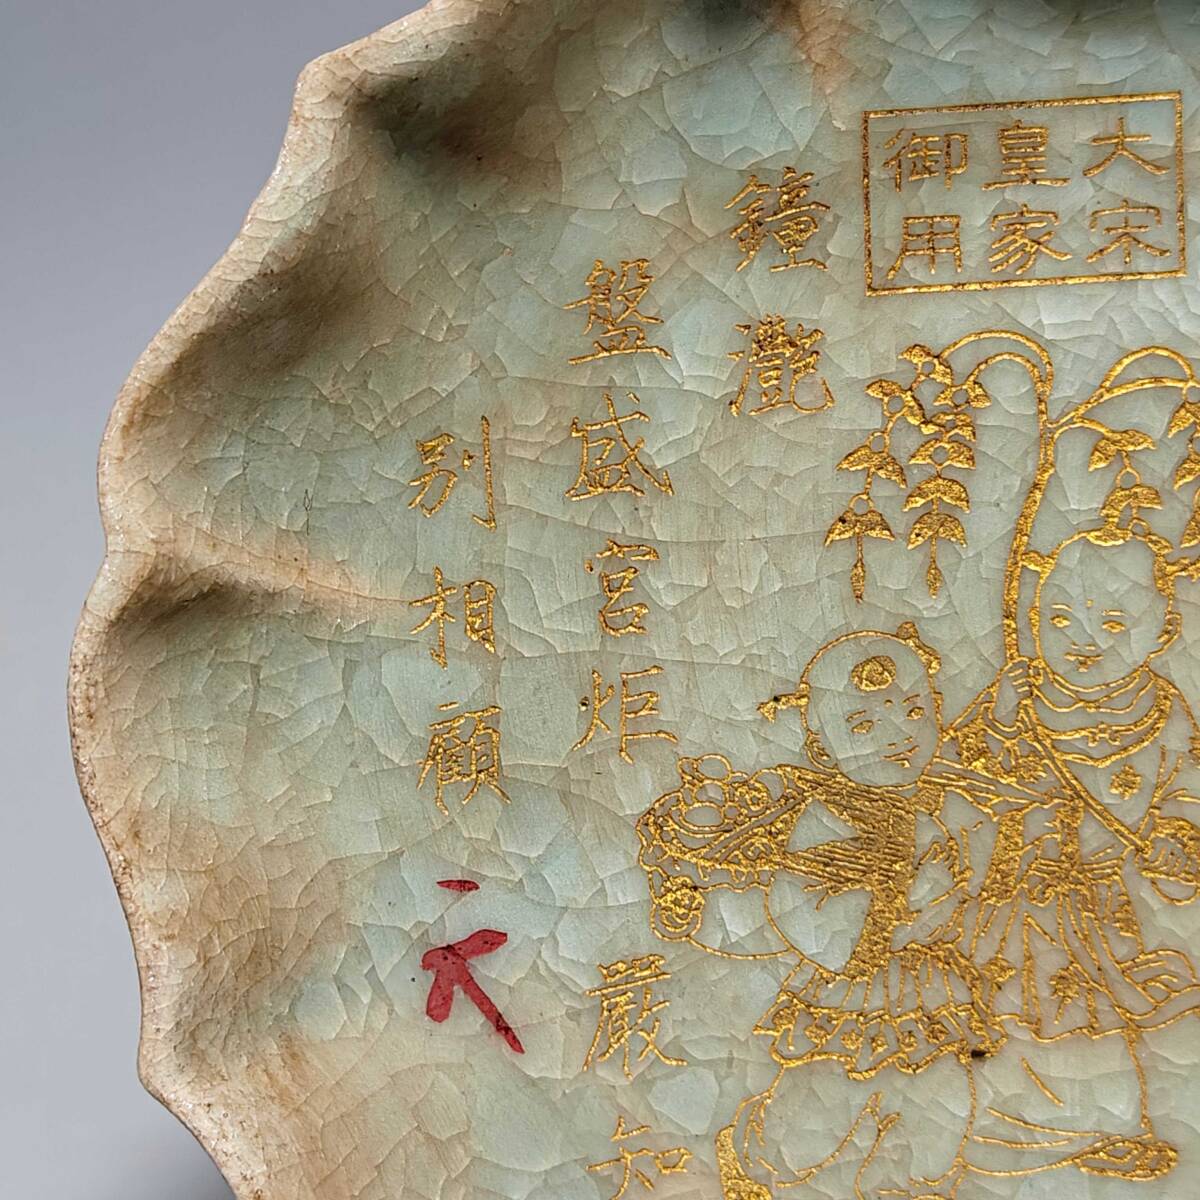 大宋
皇家
御用
鐘灔
盤盛宮炬嚴知
別相顧